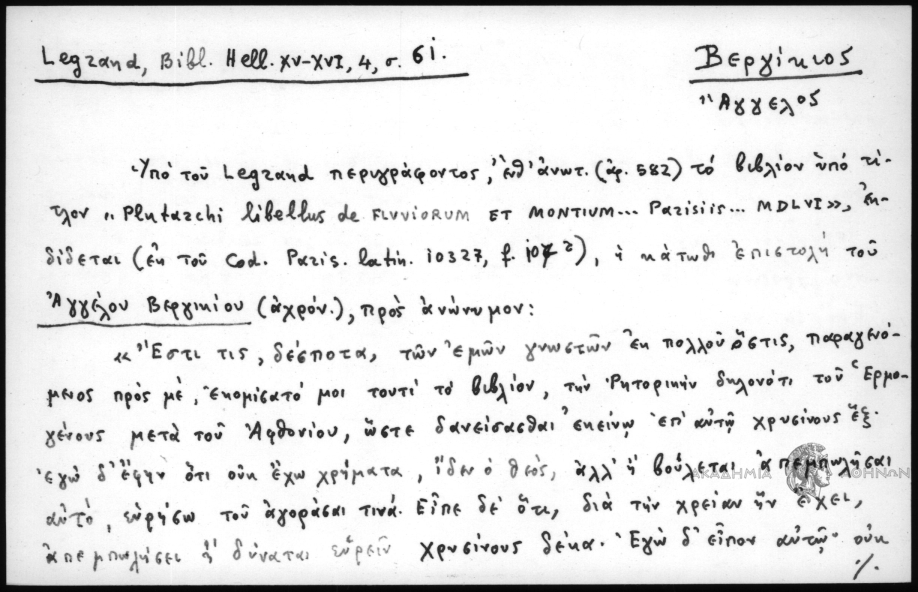 Legrand, Bibl. Hell. XV-XVI, 4, σ. 61.
Βεργίκιος
Ἄγγελος
Ὑπό τοῦ Legrand περιγράφοντος, ἐνθ' ἀνωτ. (ἀρ. 582) τό βιβλίον ὑπό τί-
τλον «Plutarchi libellus de FLUVIORUM ET MONTIUM... Parisiis... MDLVI», ἐκ-
δίδεται (ἐκ τοῦ Cod. Paris. latin. 10327, f. 107 2), ἡ κάτωθι ἐπιστολή τοῦ
Ἀγγέλου Βεργικίου (ἀχρόν.), πρὸς ἀνώνυμον:
«Ἔστι τις, δέσποτα, τῶν ἐμῶν γνωστῶν ἐκ πολλοῦ ὅστις, παραγενό-
μενος πρὸς μέ, ἐκομίσατό μοι τουτί τό βιβλίον, τὴν Ῥητορικὴν δηλονότι τοῦ Ἑρμο-
γένους μετά τοῦ Ἀφθονίου, ὥστε δανείσασθαι ἐκείνῳ ἐπ' αὐτῷ χρυσίνους ἕξ.
ἐγώ δ' ἔφην ὅτι οὐκ ἔχω χρήματα, ἴδεν ὁ θεός, ἀλλ' ἠ βούλεται ἀπεμπωλῆσαι
αὐτό, εὑρήσω τοῦ ἀγοράσαι τινά. Εἶπε δέ ὅτι, διά τὴν χρείαν ἣν ἔχει,
ἀπεμπωλήσει ἠ δύναται εὑρεῖν χρυσίνους δέκα. Ἐγώ δ' εἶπον αὐτῷ· οὐκ
./.
ΑΚΑΔΗΜΙΑ ΑΘΗΝΩΝ